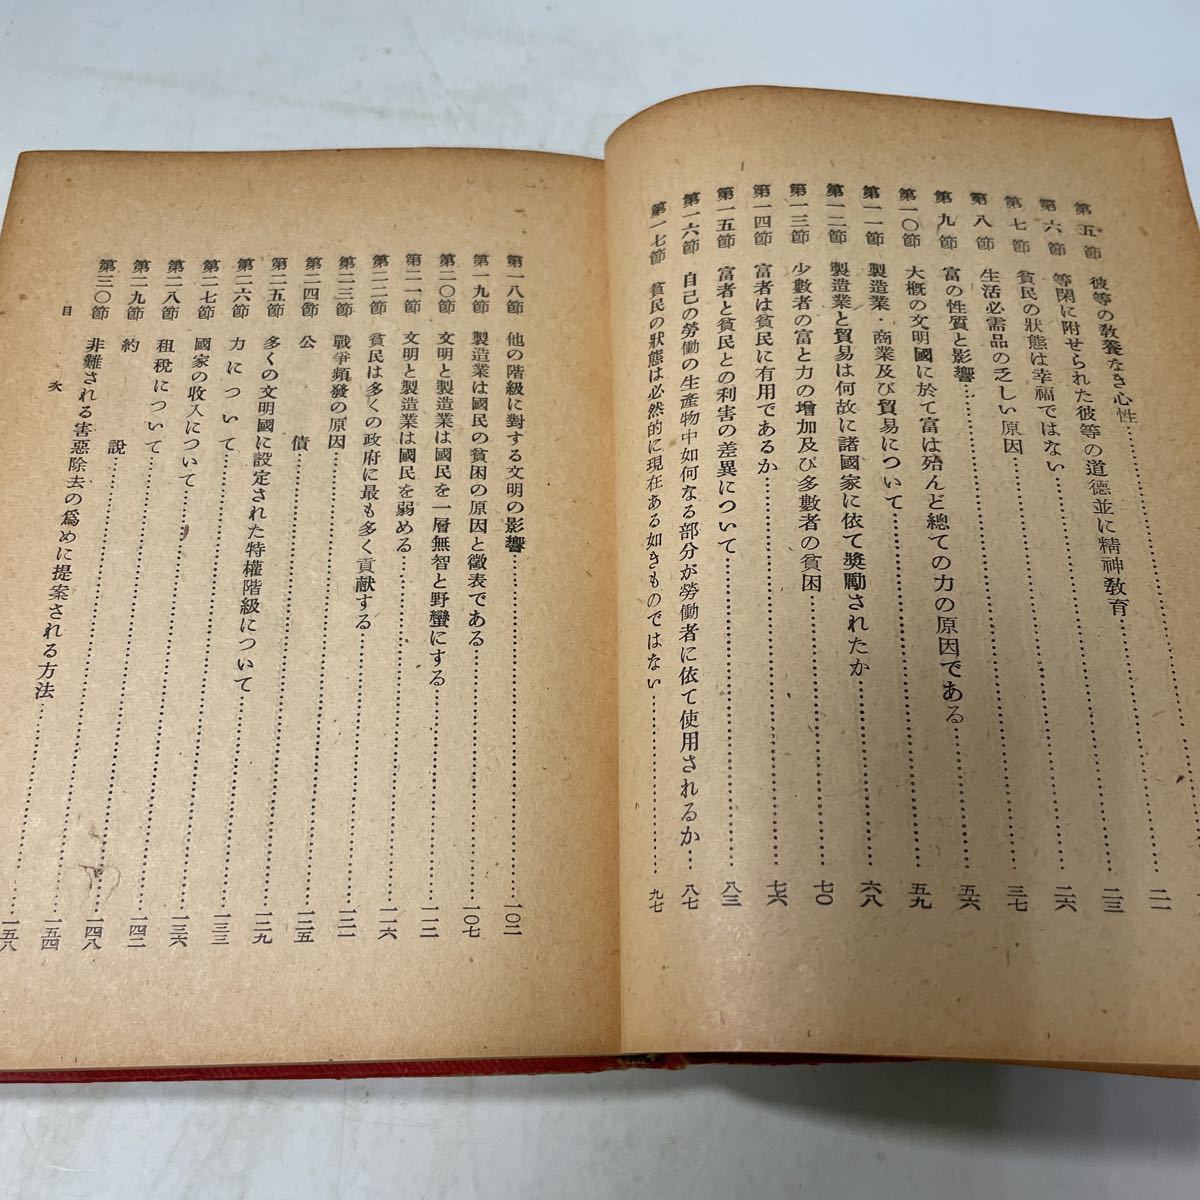 第五節 彼等の敎養なき心性……
第六節 等閑に附せられた彼等の道德並に精神敎育……二一
第七節 貧民の狀態は幸福ではない……二三
第八節 生活必需品の乏しい原因……二六
第九節 富の性質と影響……三七
第一〇節 大槪の文明國に於て富は殆んど總ての力の原因である……五六
第一一節 製造業・商業及び貿易について……五九
第一二節 製造業と貿易は何故に諸國家に依て奬勵されたか……六八
第一三節 少數者の富と力の增加及び多數者の貧困……七〇
第一四節 富者は貧民に有用であるか……七六
第一五節 富者と貧民との利害の差異について……八三
第一六節 自己の勞働の生產物中如何なる部分が勞働者に依て使用されるか……八七
第一七節 貧民の狀態は必然的に現在ある如きものではない……九七
第一八節 他の階級に對する文明の影響……一〇二
第一九節 製造業は國民の貧困の原因と徵表である……一〇七
第二〇節 文明と製造業は國民を一層無智と野蠻にする……一一二
第二一節 文明と製造業は國民を弱める……一一六
第二二節 貧民は多くの政府に最も多く貢獻する……一二一
第二三節 戰爭頻發の原因……一二五
第二四節 公債……一二九
第二五節 多くの文明國に設定された特權階級について……一三三
第二六節 力について……一三六
第二七節 國家の收入について……一四二
第二八節 租稅について……一四八
第二九節 約說……一五四
第三〇節 非難される害惡除去の爲めに提案される方法……一五八
目次